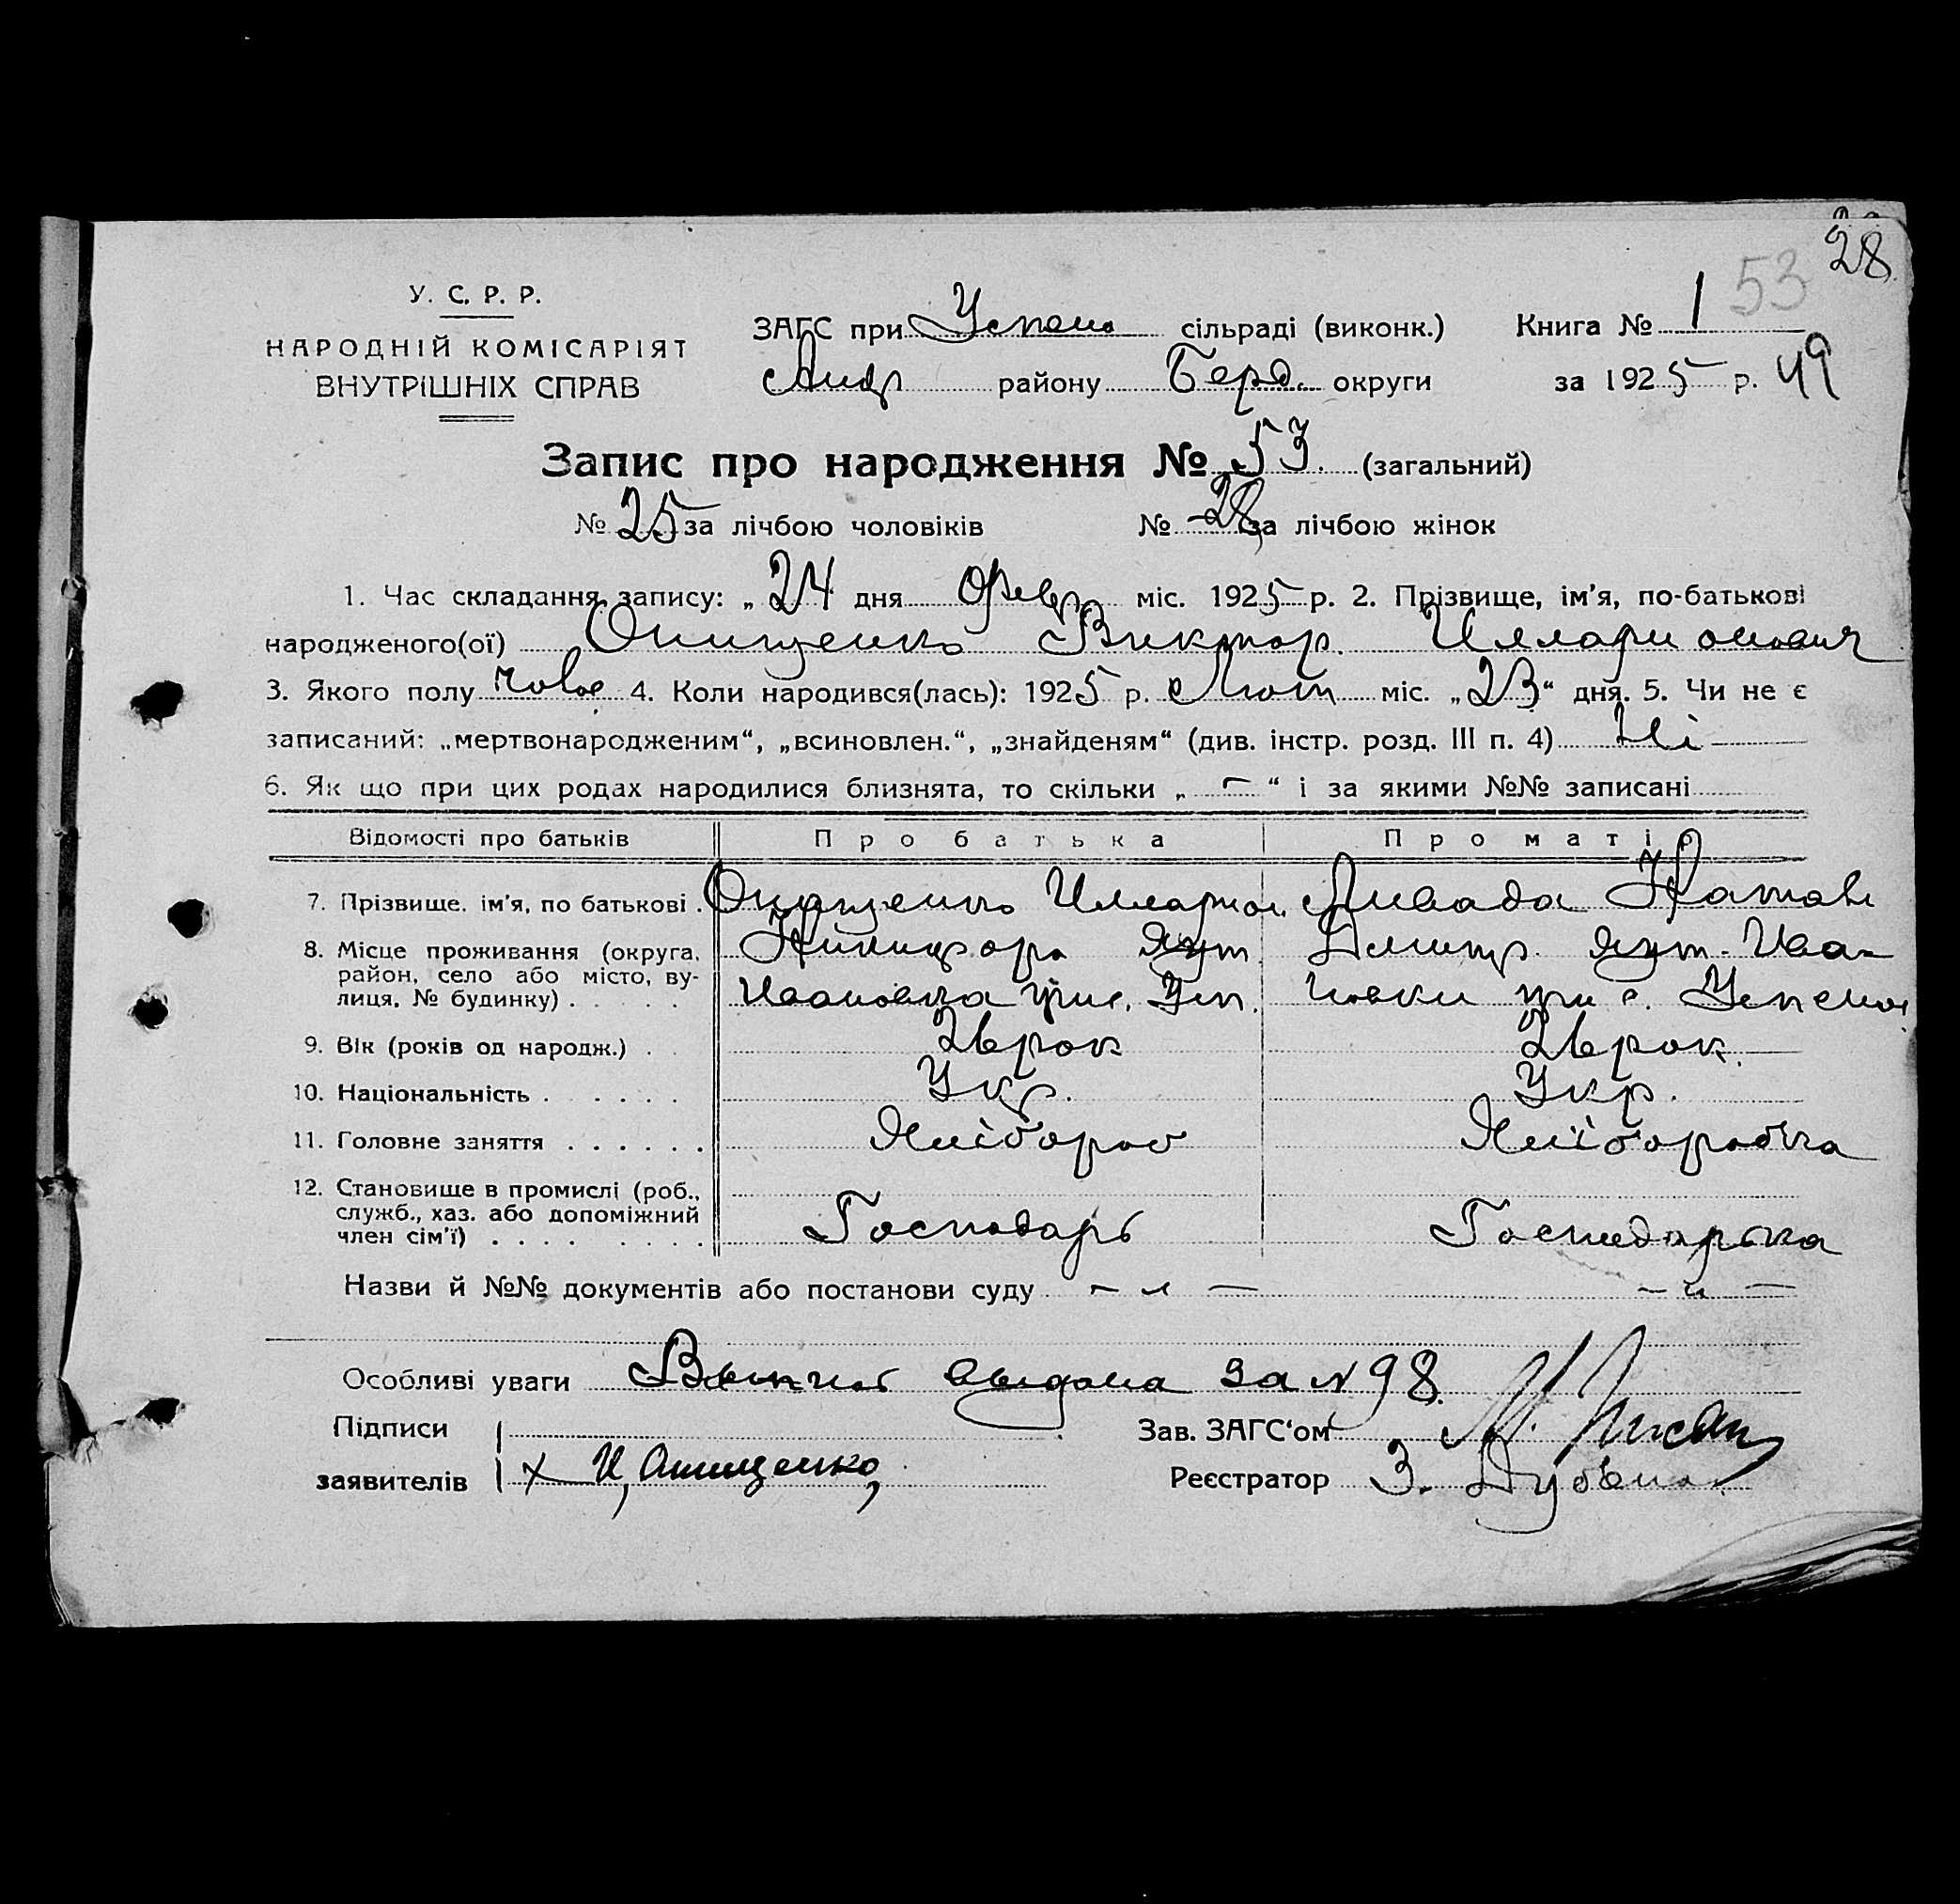 28
53
У. С. Р. Р.
НАРОДНІЙ КОМІСАРІЯТ
ВНУТРІШНІХ СПРАВ
ЗАГС при Успено сільраді (виконк.) Книга № 1
Андр району Берд. округи за 1925 р. 49
Запис про народження № 53. (загальний)
№ 25 за лічбою чоловіків № 28 за лічбою жінок
1. Час складання запису: „ 24 дня Февр міс. 1925 р. 2. Прізвище, ім'я, по-батькові
народженого(ої) Онищенко Виктор. Иллларионович
3. Якого полу 4. Коли народився(лась): 1925 р. Лют міс. „23“ дня. 5. Чи не є
записаний: „мертвонародженим“, „всиновлен.“, „знайденям“ (див. інстр. розд. III п. 4) Ні
6. Як що при цих родах народилися близнята, то скільки „ – “ і за якими №№ записані
Відомості про батьків Про батька Про матір
7. Прізвище, ім'я, по батькові . Онищенко Илларион. Ливада Натал
8. Місце проживання (округа, район, село або місто, вулиця, № будинку) . . . . . Никифоро хут. Ивановка при с. Усп. Дмитр. хут. Ивановки при с. Успено
9. Вік (років од народж.) . 26 рок 26 рок.
10. Національність . . . . . . Укр. Укр.
11. Головне заняття . . . . . . Хлібороб Хліборобка
12. Становище в промислі (роб., служб., хаз. або допоміжний член сім'ї) . . . . . . . . Господарь Господарька
Назви й №№ документів або постанови суду – „ – – „ –
Особливі уваги Выпись выдана за № 98.
Підписи Зав. ЗАГС'ом
заявителів х И, Онищенко, Реєстратор З.